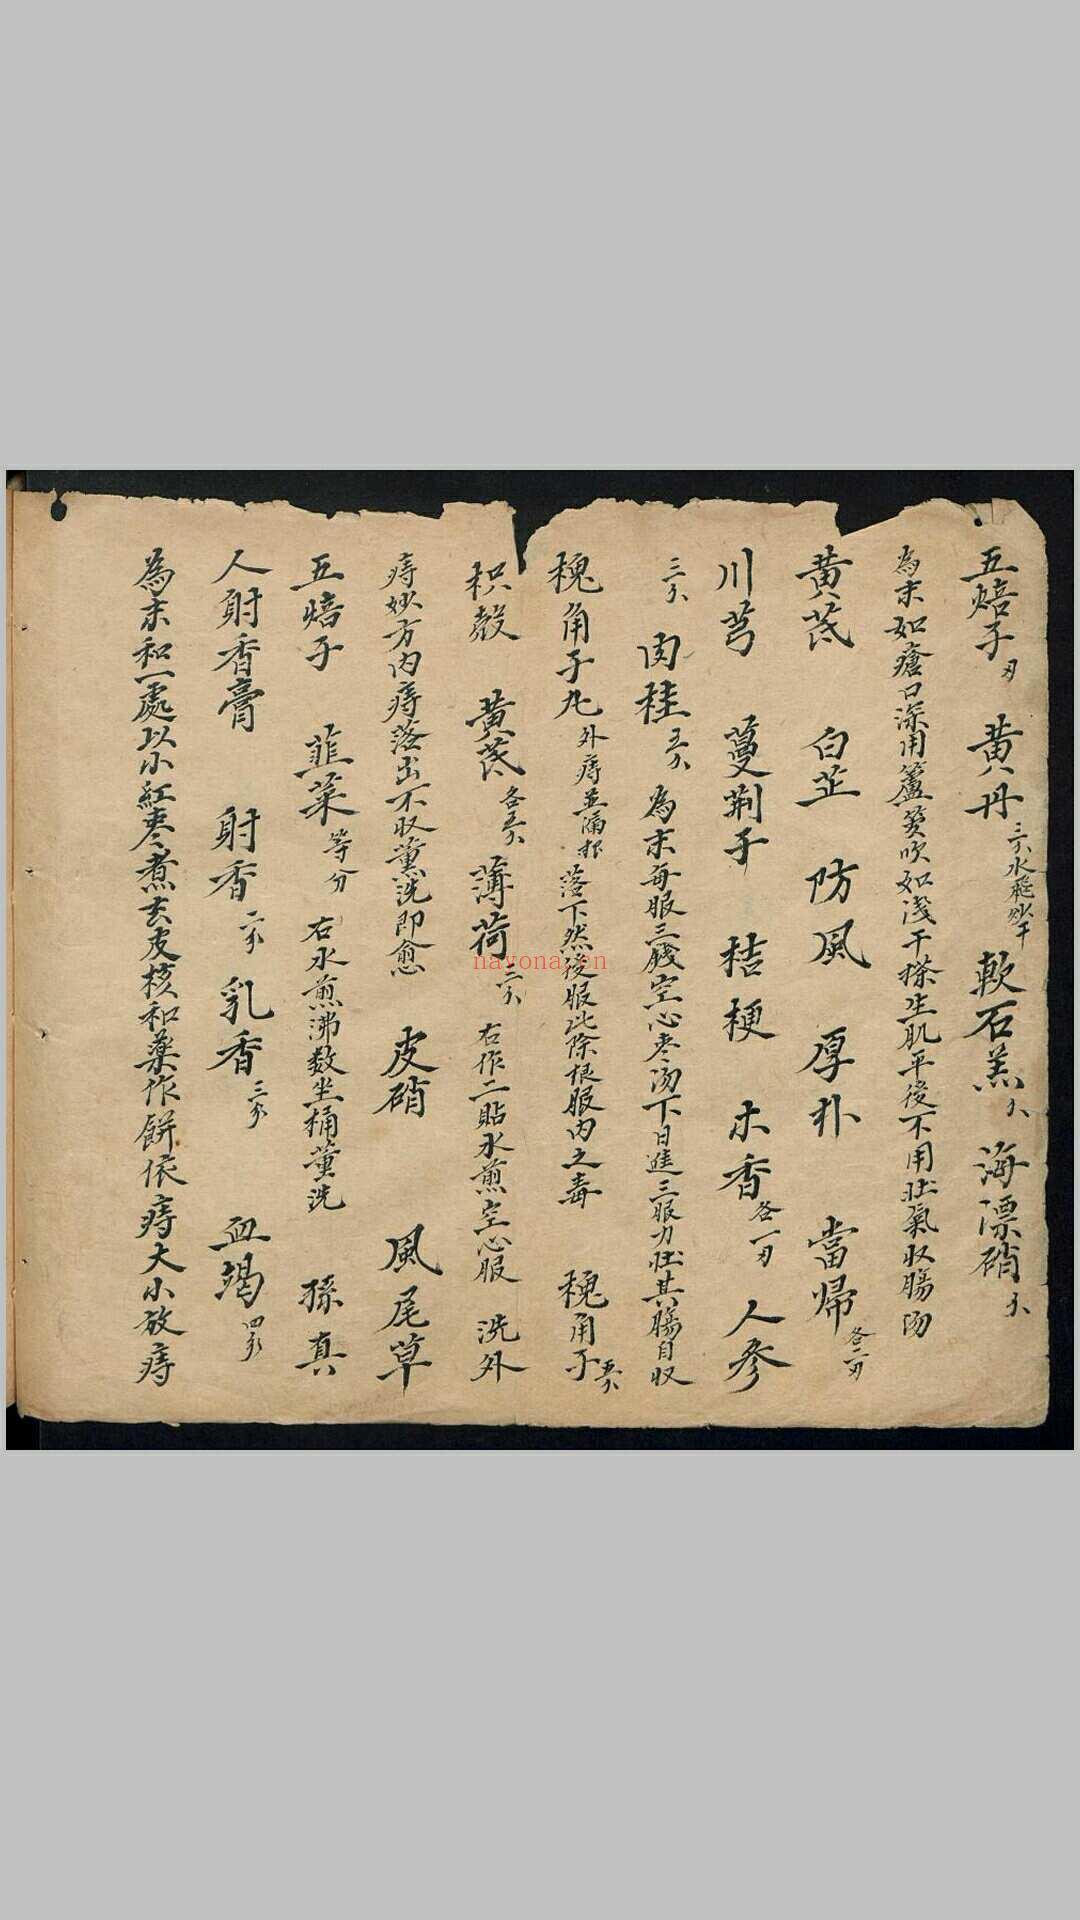 五焙子刄 黄丹三个水飛炒干 軟石羔个 海漂硝个
為末如瘡口深用籚筊吹如浅干搽生肌平後不用壮氣収腸汤
黄茋 白芷 防風 厚朴 當帰各二刄
川芎 蔓荆子 桔梗 木香各一刄 人参
三个 肉桂五个 為末每服三錢空心枣汤下日進三服力壮其腸自収
槐角子丸 外痔並漏 落下然後服此除根服内之毒 槐角子五个
枳殼 黄茋各五个 薄荷三个 右作二貼水煎空心服 洗外
痔妙方内痔落出不収薰洗即愈 皮硝 風尾草
五焙子 韮菜等分 右水煎沸数坐桶薰洗 孫真
人射香膏 射香二分 乳香三分 血竭四分
為末和一處以小紅枣煮去皮核和藥作餅依痔大小放痔
nayona.cn